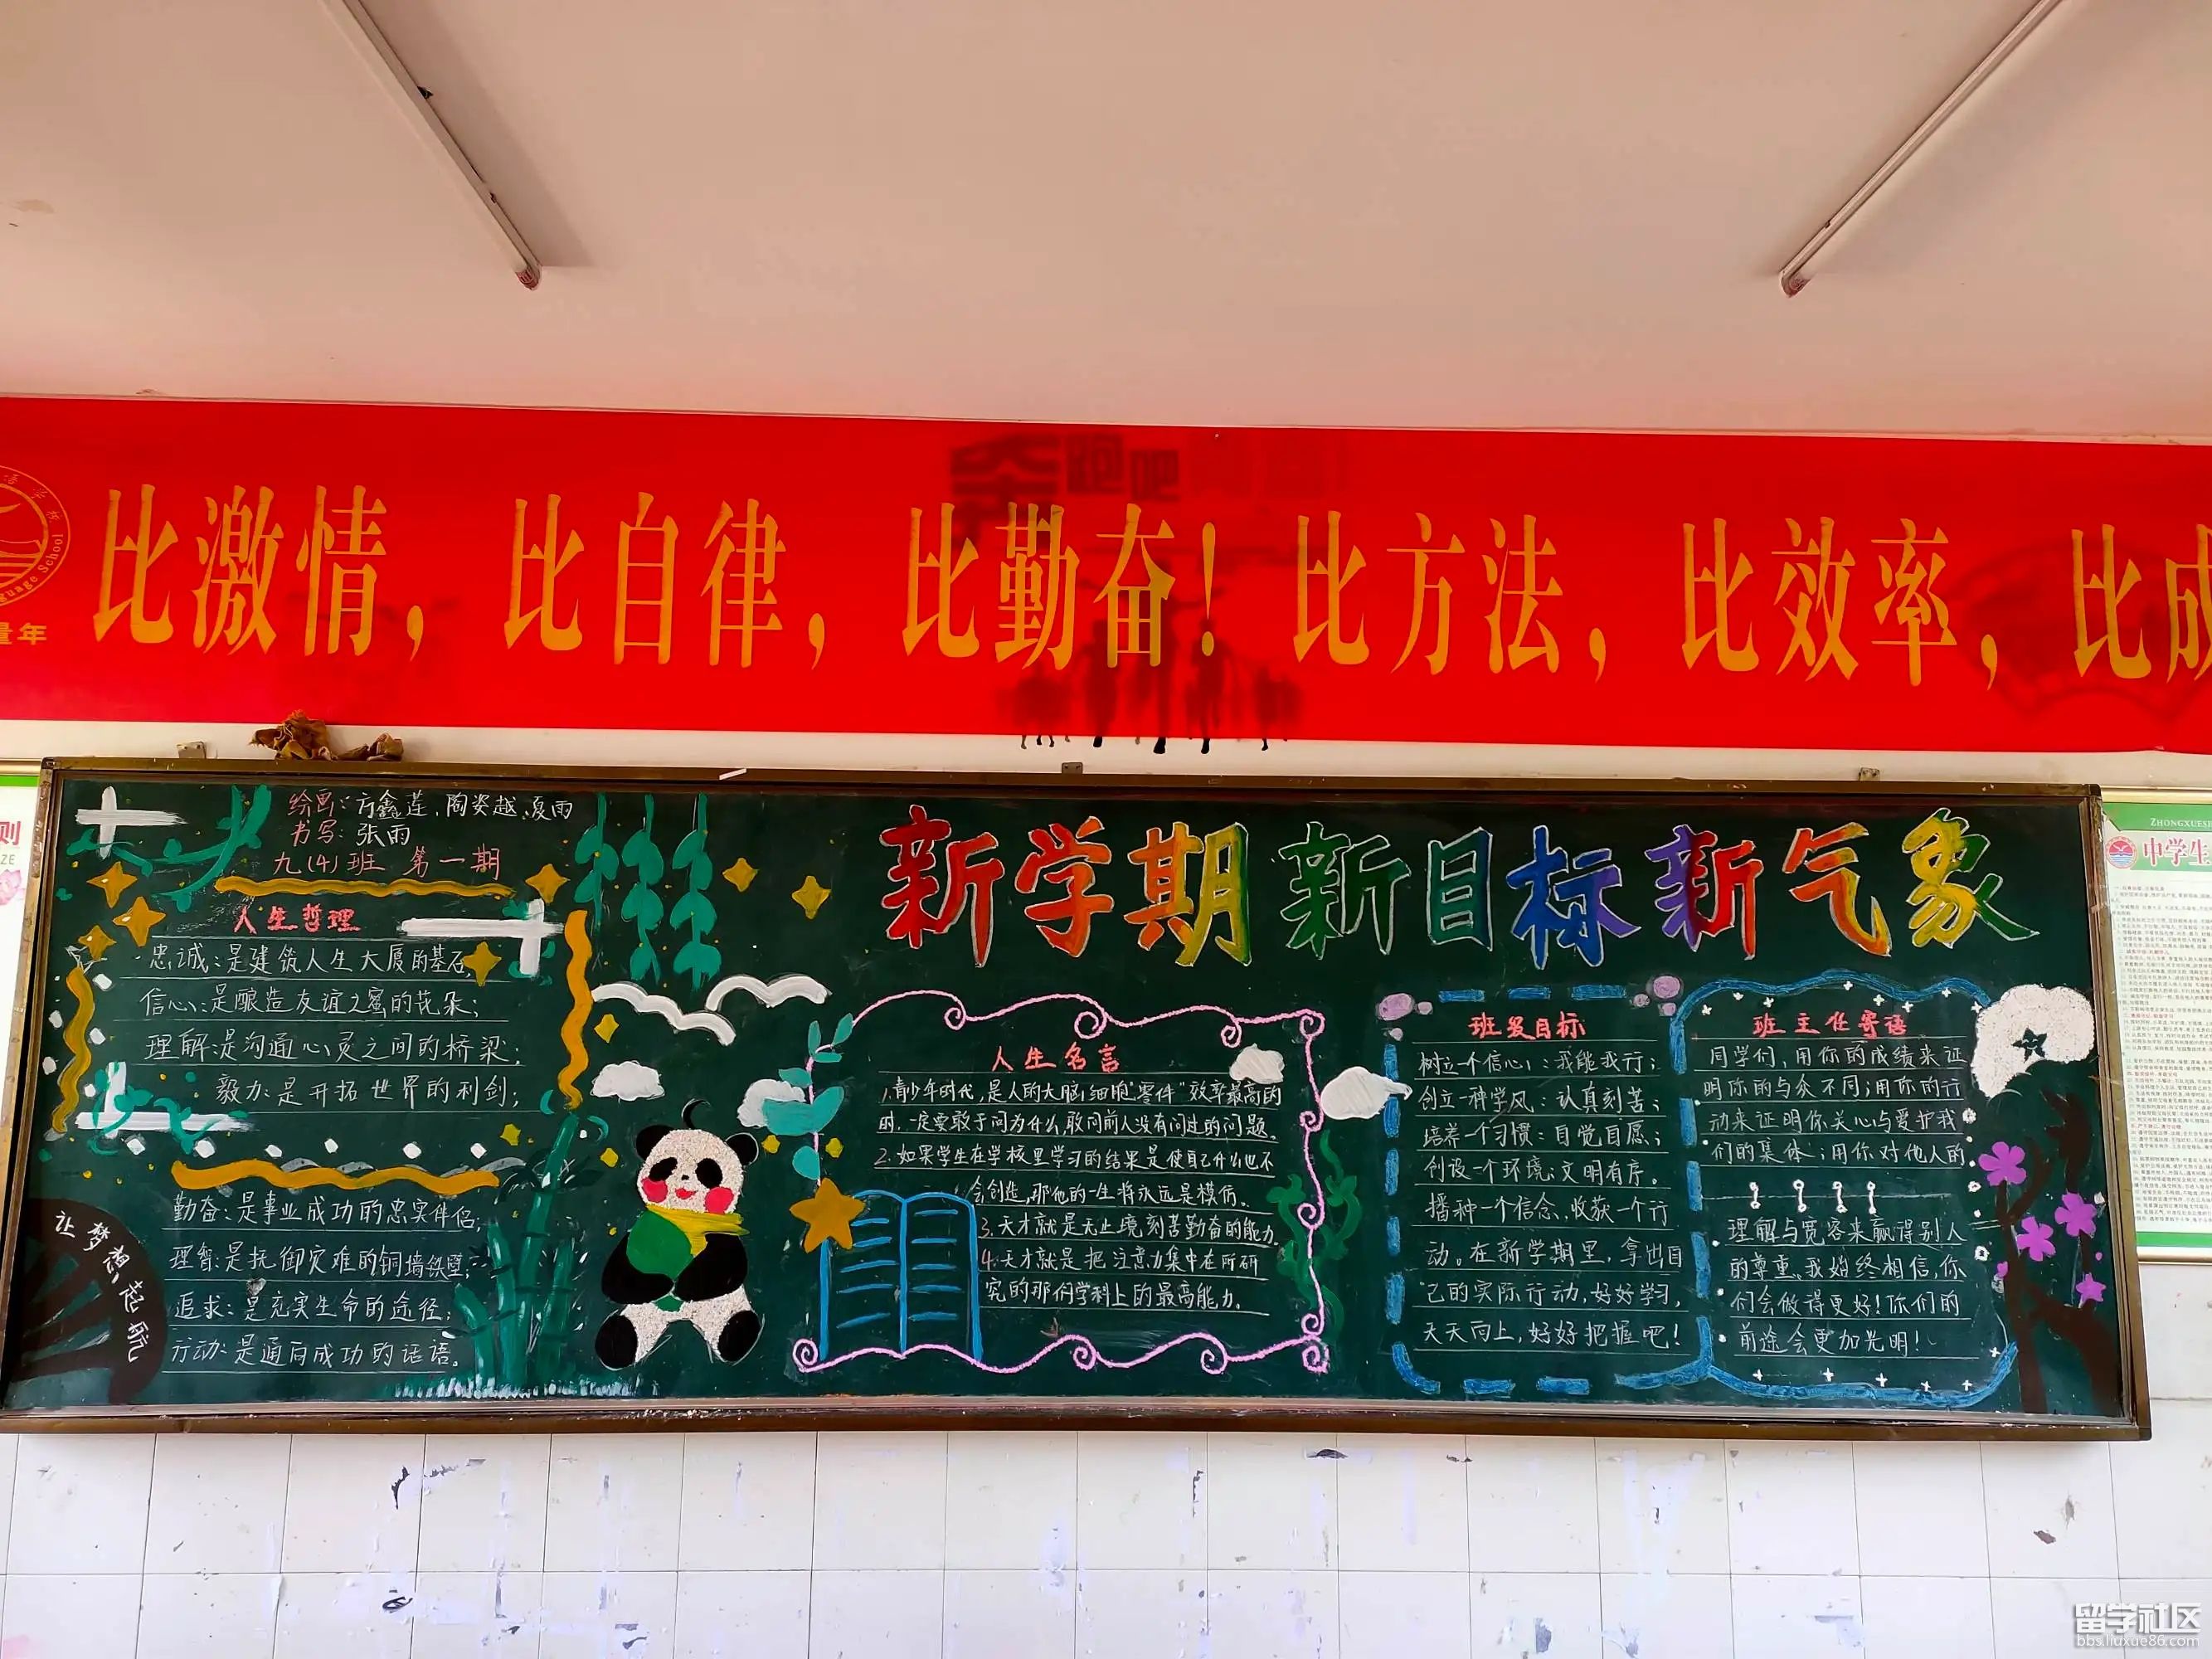 奔跑吧
比激情，比自律，比勤奋！比方法，比效率，比成
guage School
量年
则
ZE
绘画：方鑫莲、陶姿越、夏雨
书写：张雨
九(4)班 第一期
人生哲理
忠诚：是建筑人生大厦的基石；
信心：是酿造友谊之蜜的花朵；
理解：是沟通心灵之间的桥梁；
毅力：是开拓世界的利剑；
勤奋：是事业成功的忠实伴侣；
理智：是抚御灾难的铜墙铁壁；
追求：是充实生命的途径；
行动：是通向成功的话语。
让梦想起航
新学期新目标新气象
人生名言
1.青少年时代，是人的大脑细胞"零件"效率最高的
时，一定要敢于问为什么敢问前人没有问过的问题。
2.如果学生在学校里学习的结果是使自己什么也不
会创造，那他的一生将永远是模仿。
3.天才就是无止境刻苦勤奋的能力。
4.天才就是把注意力集中在所研
究的那们学科上的最高能力。
班级目标
树立一个信心：我能我行；
创立一种学风：认真刻苦；
培养一个习惯：自觉自愿；
创设一个环境：文明有序。
播种一个信念，收获一个行
动。在新学期里，拿出自
己的实际行动，好好学习，
天天向上，好好把握吧！
班主任寄语
同学们，用你的成绩来证
明你的与众不同；用你的行
动来证明你关心与爱护我
们的集体；用你对他人的
理解与宽容来赢得别人
的尊重。我始终相信，你
们会做得更好！你们的
前途会更加光明！
ZHONGXUES
中学生
留学社区
bbs.liuxue86.com